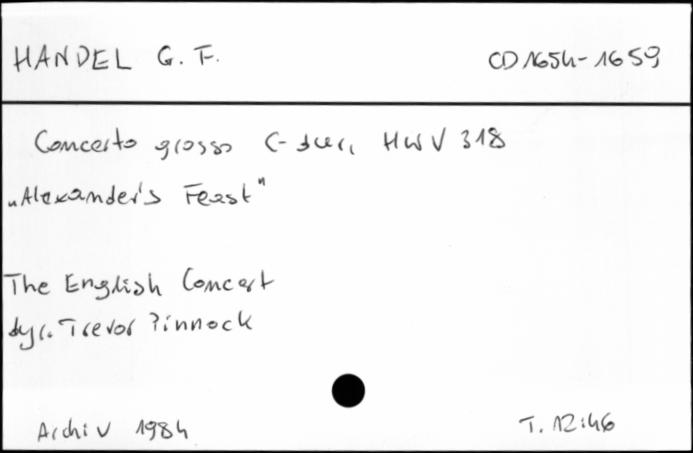 HANDEL G. F.
CD 1654-1659
Concerto grosso C-dur, HWV 318
„Alexander's Feast"
The English Concert
dyr. Trevor Pinnock
Archiv 1984
T. 12:46